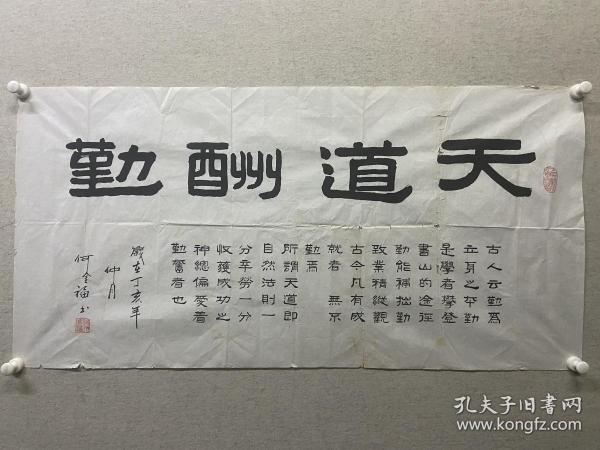 天道酬勤
古人云勤為
立身之本勤
是學者攀登
書山的途徑
勤能補拙勤
致業精縱觀
古今凡有成
就者無不
勤焉
所謂天道即
自然法則一
分辛勞一分
收獲成功之
神總偏愛着
勤奮者也
歲在丁亥年
仲月
何金福书
孔夫子旧书网
www.kongfz.com